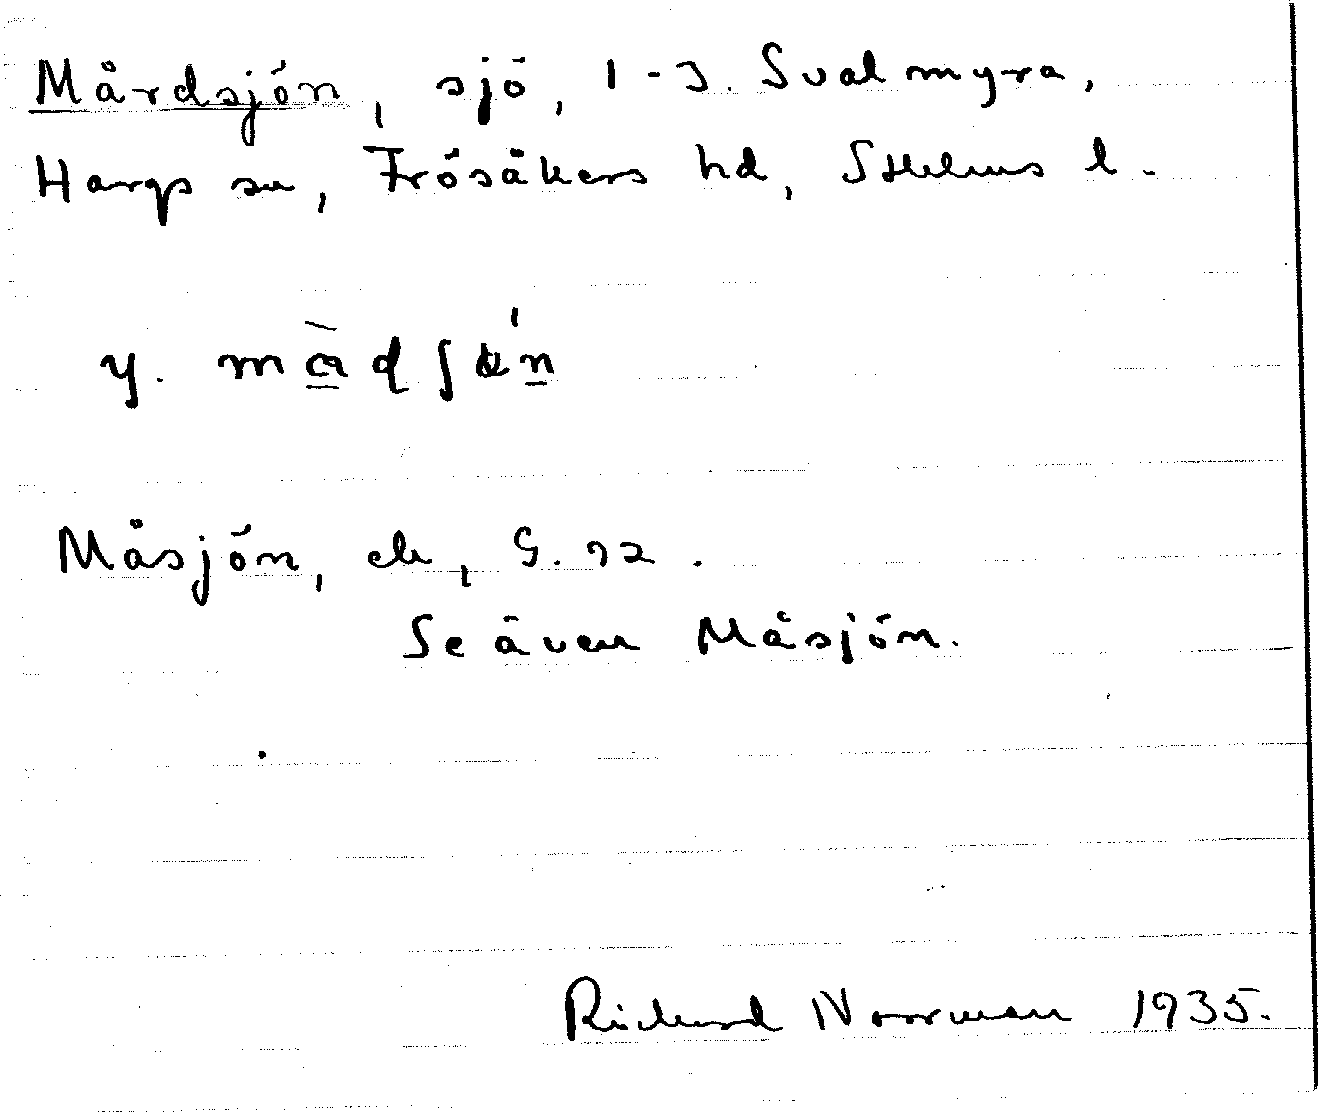 Mårdsjön, sjö, 1-3. Svalmyra,
Hargs sn, Frösåkers hd, Sthlms l.
y. màdʃǿn
Måsjön, ek, G. 92.
Se även Måsjön.
Richard Norrman 1935.